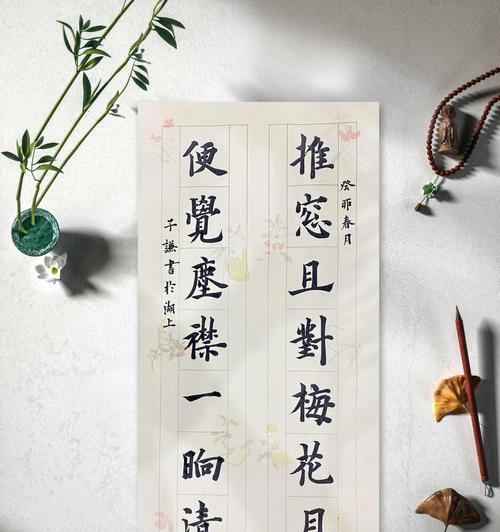 癸卯春月
推窓且對梅花月
便覺塵襟一晌清
子謙書於湖上